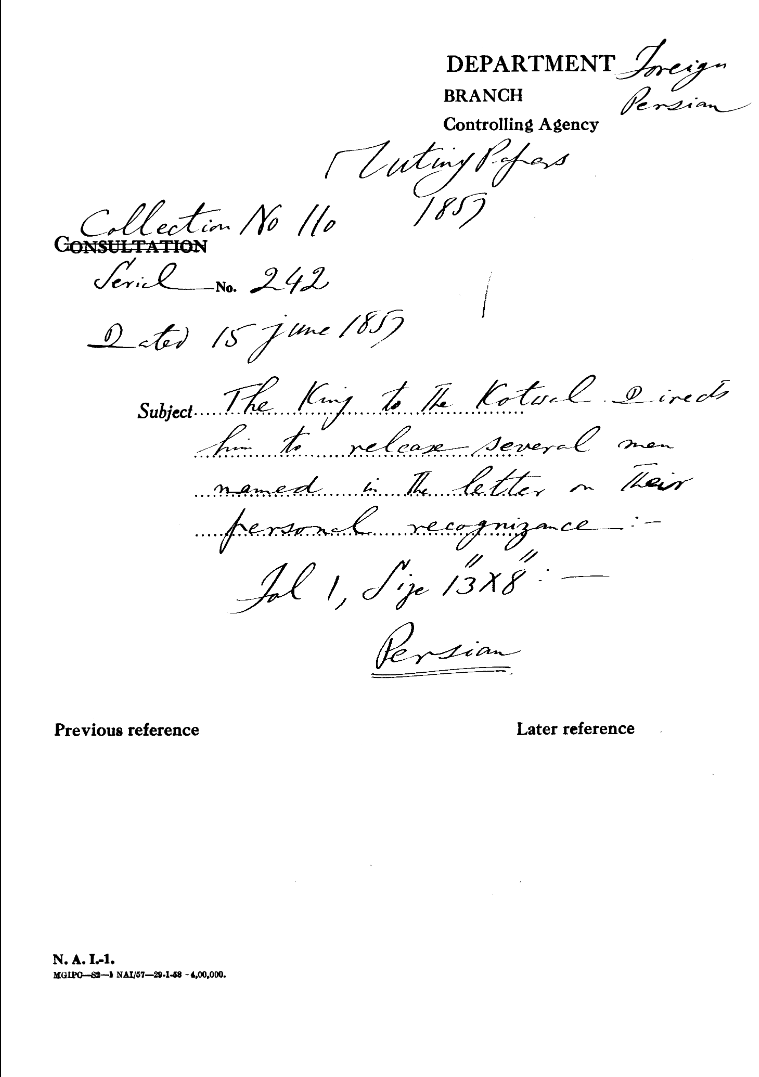 DEPARTMENT Foreign
BRANCH Persian
Controlling Agency
Mutiny Papers
1857
Collection No 110
CONSULTATION
Serial No. 242
Dated 15 June 1857
Subject The King to the Kotwal Directs
him to release several men
named in the letter on their
personal recognizance :-
Fol 1, Size 13"X8" : —
Persian
Previous reference
Later reference
N. A. I.-1.
MGIPC—S2—1 NAI/57—29-1-58 - 4,00,000.